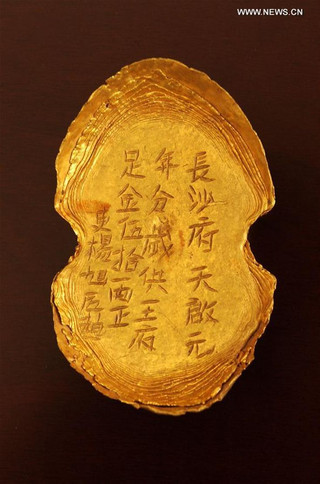 WWW.NEWS.CN
長沙府天啟元
年分歲供王府
足金伍拾兩正
吏楊旭匠